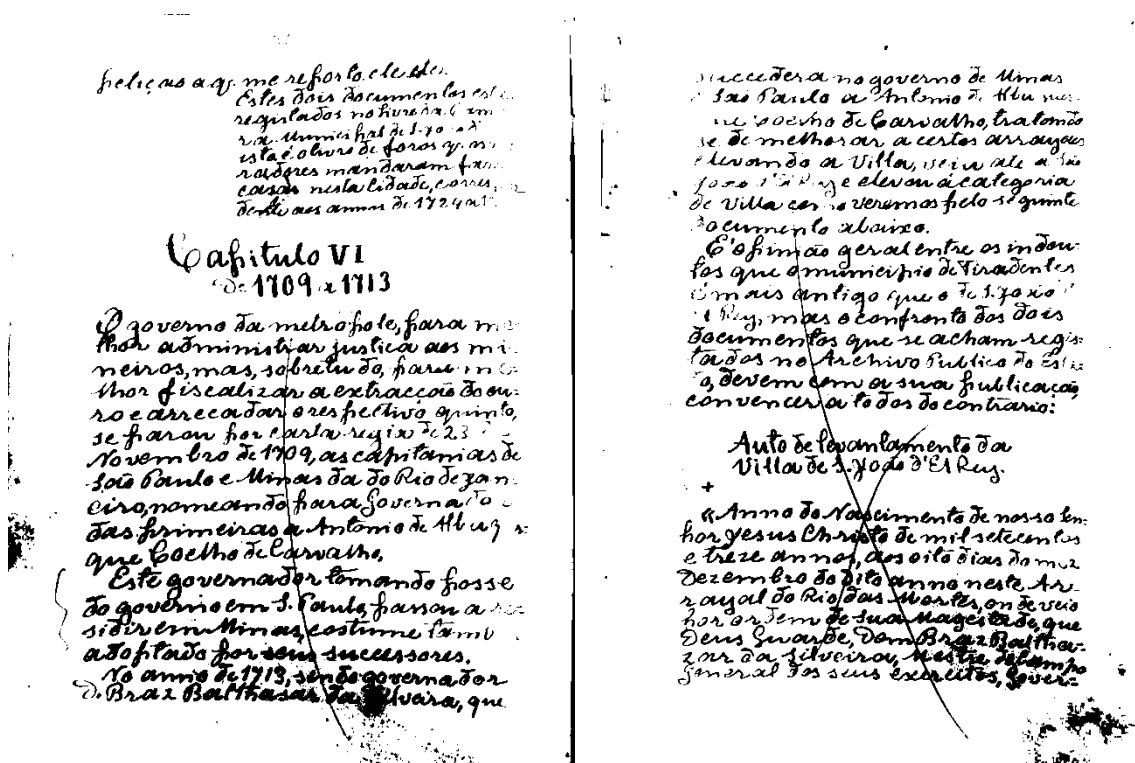 petiçao a q. me reporto eleitos.
Estes dois documentos est
registados no livro da Cam
ra Municipal de S. João d
este é o livro de foros q. mo
radores mandaram faz
casas nesta Cidade, corres
dente aos annos de 1724 a 1
Capitulo VI
De 1709 a 1713
O governo da metropole, para me
lhor administrar justica aos mi
neiros, mas, sobretudo, para me
lhor fiscalizar a extracção do ou-
ro e arrecadar o respectivo quinto,
separou por carta regia de 23
Novembro de 1709, as capitanias de
São Paulo e Minas da do Rio de Jan
eiro, nomeando para Governado
das primeiras a Antonio de Albuq
que Coelho de Carvalho.
Este governador tomando posse
do governo em S. Paulo, passou a re
sidir em Minas, costume tamb
adoptado por seus successores.
No anno de 1713, sendo governador
D. Braz Balthasar da Silveira, que
succedera no governo de Minas
e São Paulo a Antonio de Albuquer
que Coelho de Carvalho, tratando
se de melhorar a certos arrayaes
elevando a Villa, veiu ate a São
João d'El Rey e elevou á categoria
de Villa como veremos pelo seguinte
documento abaixo.
E' opinião geral entre os indou-
tos que o municipio de Tiradentes
é mais antigo que o de S. João
d'El Rey, mas o confronto dos dois
documentos que se acham regis-
tados no Archivo Publico do Esta
do, devem com a sua publicação,
convencer a todos do contrario:
Auto de levantamento da
Villa de S. João d'El Rey.
+
« Anno do Nascimento de nosso Sen-
hor Jesus Christo de mil setecentos
e treze annos, aos oito dias do mez
Dezembro do dito anno neste Ar-
rayal do Rio das Mortes, onde veio
por ordem de sua Magestade, que
Deus Guarde, Dom Braz Baltha-
zar da Silveira, Mestre de Campo
General dos seus exercitos, Gover-